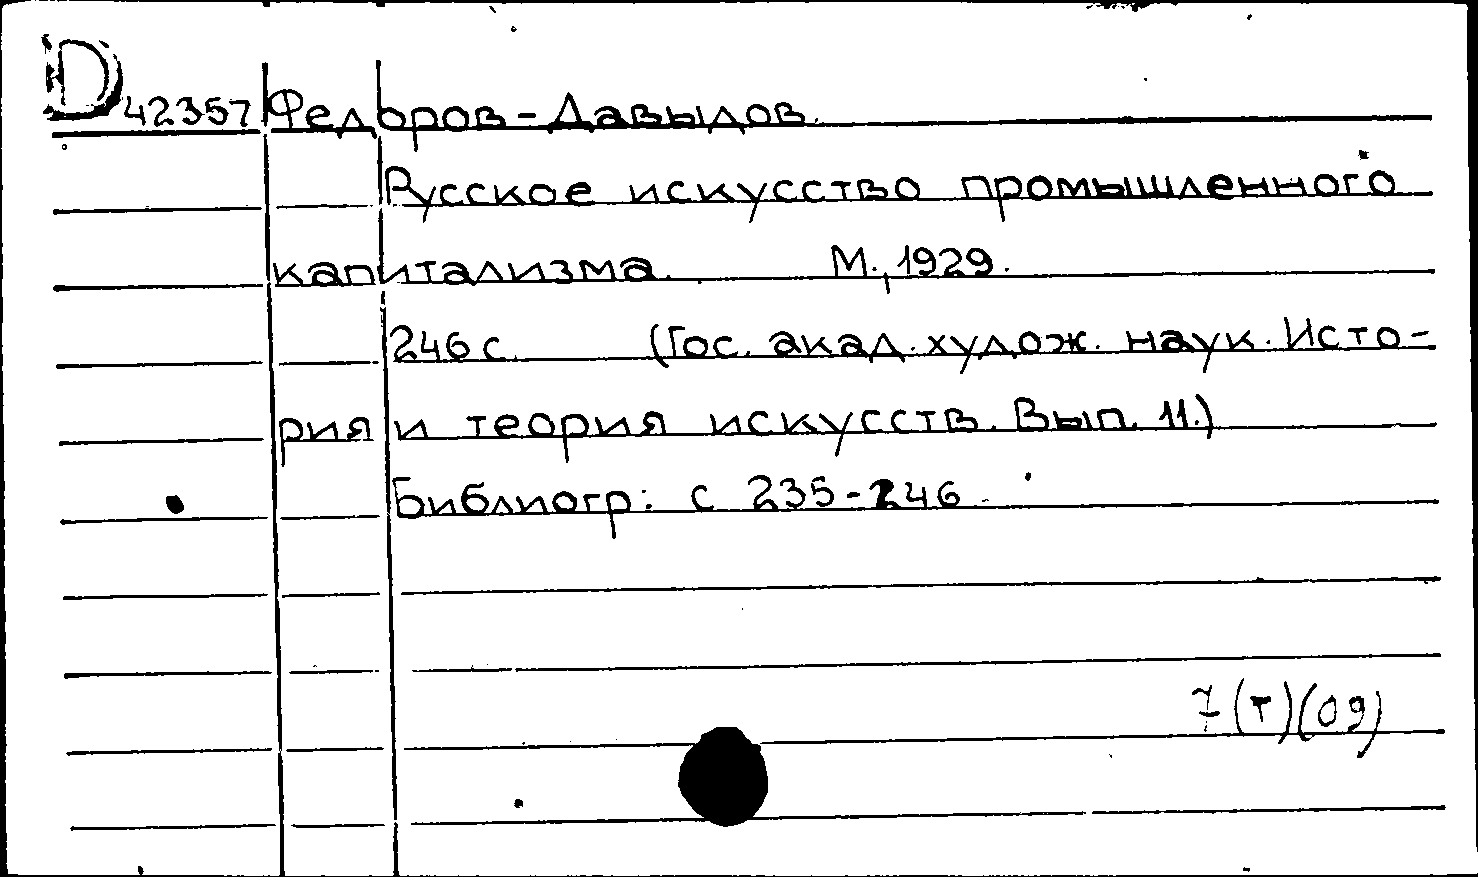 D 42357 Федоров-Давыдов.
Русское искусство промышленного
капитализма. М., 1929.
246 с. (Гос. акад. худож. наук. Исто-
рия и теория искусств. Вып. 11.)
Библиогр: с 235-246
7(т)(09)